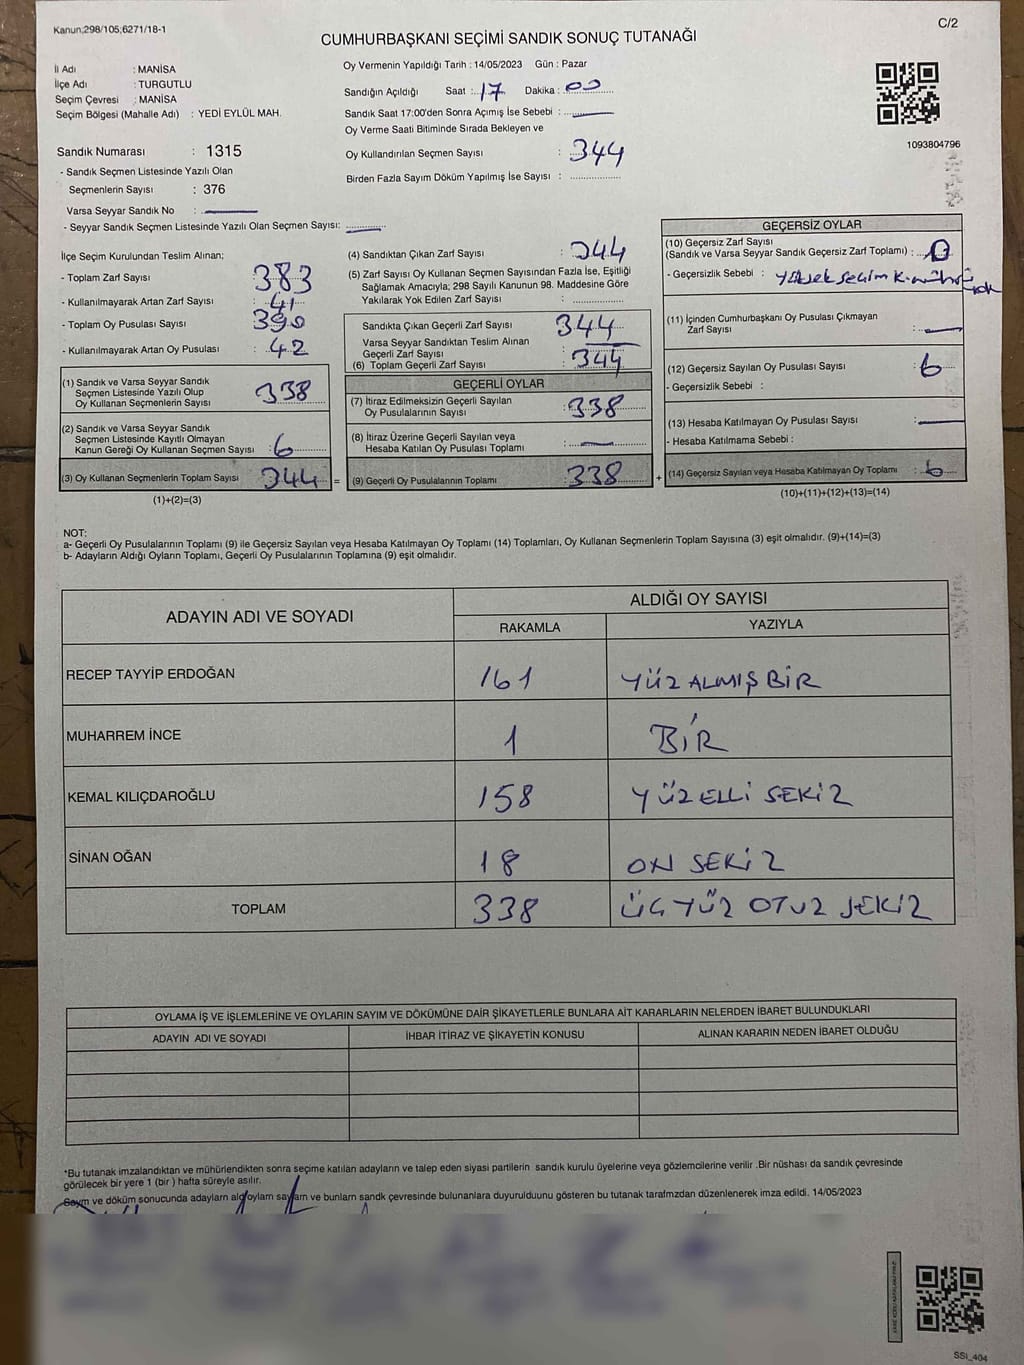 Kanun;298/105;6271/18-1
C/2
CUMHURBAŞKANI SEÇİMİ SANDIK SONUÇ TUTANAĞI
İl Adı : MANİSA
İlçe Adı : TURGUTLU
Seçim Çevresi : MANİSA
Seçim Bölgesi (Mahalle Adı) : YEDİ EYLÜL MAH.
Sandık Numarası : 1315
- Sandık Seçmen Listesinde Yazılı Olan
Seçmenlerin Sayısı : 376
Varsa Seyyar Sandık No :
- Seyyar Sandık Seçmen Listesinde Yazılı Olan Seçmen Sayısı:
Oy Vermenin Yapıldığı Tarih : 14/05/2023 Gün : Pazar
Sandığın Açıldığı Saat : 17 Dakika : 00
Sandık Saat 17:00'den Sonra Açımış İse Sebebi :
Oy Verme Saati Bitiminde Sırada Bekleyen ve
Oy Kullandırılan Seçmen Sayısı : 344
Birden Fazla Sayım Döküm Yapılmış İse Sayısı :
1093804796
İlçe Seçim Kurulundan Teslim Alınan;
- Toplam Zarf Sayısı : 383
- Kullanılmayarak Artan Zarf Sayısı : 41
- Toplam Oy Pusulası Sayısı :
- Kullanılmayarak Artan Oy Pusulası : 42
(1) Sandık ve Varsa Seyyar Sandık
Seçmen Listesinde Yazılı Olup
Oy Kullanan Seçmenlerin Sayısı : 338
(2) Sandık ve Varsa Seyyar Sandık
Seçmen Listesinde Kayıtlı Olmayan
Kanun Gereği Oy Kullanan Seçmen Sayısı : 6
(3) Oy Kullanan Seçmenlerin Toplam Sayısı 344 =
(1)+(2)=(3)
(4) Sandıktan Çıkan Zarf Sayısı : 344
(5) Zarf Sayısı Oy Kullanan Seçmen Sayısından Fazla İse, Eşitliği
Sağlamak Amacıyla; 298 Sayılı Kanunun 98. Maddesine Göre
Yakılarak Yok Edilen Zarf Sayısı :
Sandıkta Çıkan Geçerli Zarf Sayısı : 344
Varsa Seyyar Sandıktan Teslim Alınan
Geçerli Zarf Sayısı :
(6) Toplam Geçerli Zarf Sayısı : 344
GEÇERLİ OYLAR
(7) İtiraz Edilmeksizin Geçerli Sayılan
Oy Pusulalarının Sayısı : 338
(8) İtiraz Üzerine Geçerli Sayılan veya
Hesaba Katılan Oy Pusulası Toplamı :
(9) Geçerli Oy Pusulalarının Toplamı : 338 +
GEÇERSİZ OYLAR
(10) Geçersiz Zarf Sayısı
(Sandık ve Varsa Seyyar Sandık Geçersiz Zarf Toplamı) : 0
- Geçersizlik Sebebi :
(11) İçinden Cumhurbaşkanı Oy Pusulası Çıkmayan
Zarf Sayısı :
(12) Geçersiz Sayılan Oy Pusulası Sayısı : 6
- Geçersizlik Sebebi :
(13) Hesaba Katılmayan Oy Pusulası Sayısı :
- Hesaba Katılmama Sebebi :
(14) Geçersiz Sayılan veya Hesaba Katılmayan Oy Toplamı : 6
(10)+(11)+(12)+(13)=(14)
NOT:
a- Geçerli Oy Pusulalarının Toplamı (9) ile Geçersiz Sayılan veya Hesaba Katılmayan Oy Toplamı (14) Toplamları, Oy Kullanan Seçmenlerin Toplam Sayısına (3) eşit olmalıdır. (9)+(14)=(3)
b- Adayların Aldığı Oyların Toplamı, Geçerli Oy Pusulalarının Toplamına (9) eşit olmalıdır.
ADAYIN ADI VE SOYADI
ALDIĞI OY SAYISI
RAKAMLA YAZIYLA
RECEP TAYYİP ERDOĞAN 161 YÜZ ALMIŞ BİR
MUHARREM İNCE 1 BİR
KEMAL KILIÇDAROĞLU 158 YÜZ ELLİ SEKİZ
SİNAN OĞAN 18 ON SEKİZ
TOPLAM 338 ÜÇ YÜZ OTUZ SEKİZ
OYLAMA İŞ VE İŞLEMLERİNE VE OYLARIN SAYIM VE DÖKÜMÜNE DAİR ŞİKAYETLERLE BUNLARA AİT KARARLARIN NELERDEN İBARET BULUNDUKLARI
ADAYIN ADI VE SOYADI İHBAR İTİRAZ VE ŞİKAYETİN KONUSU ALINAN KARARIN NEDEN İBARET OLDUĞU
*Bu tutanak imzalandıktan ve mühürlendikten sonra seçime katılan adayların ve talep eden siyasi partilerin sandık kurulu üyelerine veya gözlemcilerine verilir .Bir nüshası da sandık çevresinde
görülecek bir yere 1 (bir ) hafta süreyle asılır.
Saym ve döküm sonucunda adayların aldı oylam sayların ve bunların sandk çevresinde bulunanlara duyurulduunu gösteren bu tutanak tarafmzdan düzenlenerek imza edildi. 14/05/2023
SSI_404